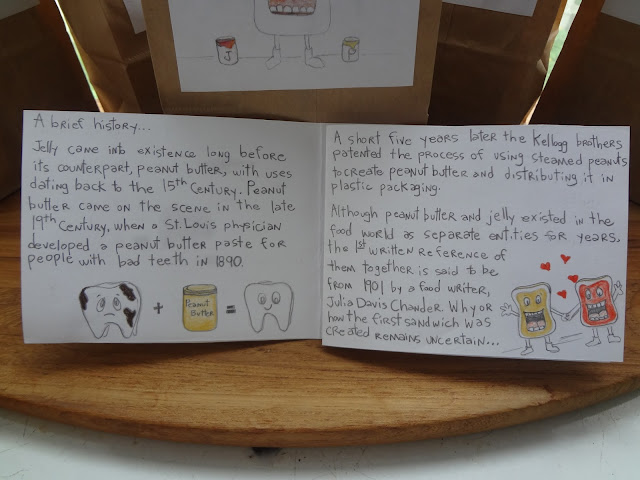 J
P
A brief history...
Jelly came into existence long before
its counterpart, peanut butter, with uses
dating back to the 15th Century. Peanut
butter came on the scene in the late
19th Century, when a St. Louis physician
developed a peanut butter paste for
people with bad teeth in 1890.
+ Peanut
Butter =
A short five years later the Kellogg brothers
patented the process of using steamed peanuts
to create peanut butter and distributing it in
plastic packaging.
Although peanut butter and jelly existed in the
food world as separate entities for years,
the 1st written reference of
them together is said to be
from 1901 by a food writer,
Julia Davis Chander. Why or
how the first sandwich was
created remains uncertain...